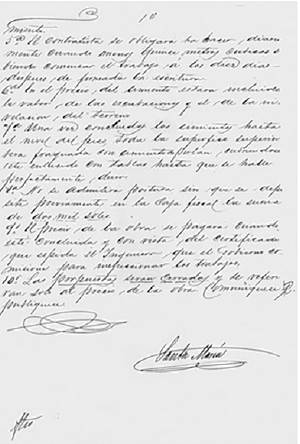 10
mente
5.ª El contratista se obligará ha hacer, diaria
mente cuando menos quince metros cubicos
comenzar el trabajo a los diez dias
despues de firmada la escritura
6.ª En el precio del cimiento estará incluido
el valor, de las escabaciones y el de la ni
velacion, del terreno
7.ª Una vez concluidos los cimientos hasta
el nivel del piso toda la superficie superior
será con cemento,
este enlucido con tablas hasta que se halle
perfectamente duro
8.ª No se admitirá postura sin que se depo
site previamente en la Caja fiscal la suma
de dos mil soles
9.ª El precio de la obra se pagará cuando
esté concluida y con vista del certificado
que expida el Ingeniero, que el Gobierno co
misione para inspeccionar los trabajos
10.ª Las propuestas serán cerradas y se
al precio, de la obra Comuniquese
publiquese
Santa María